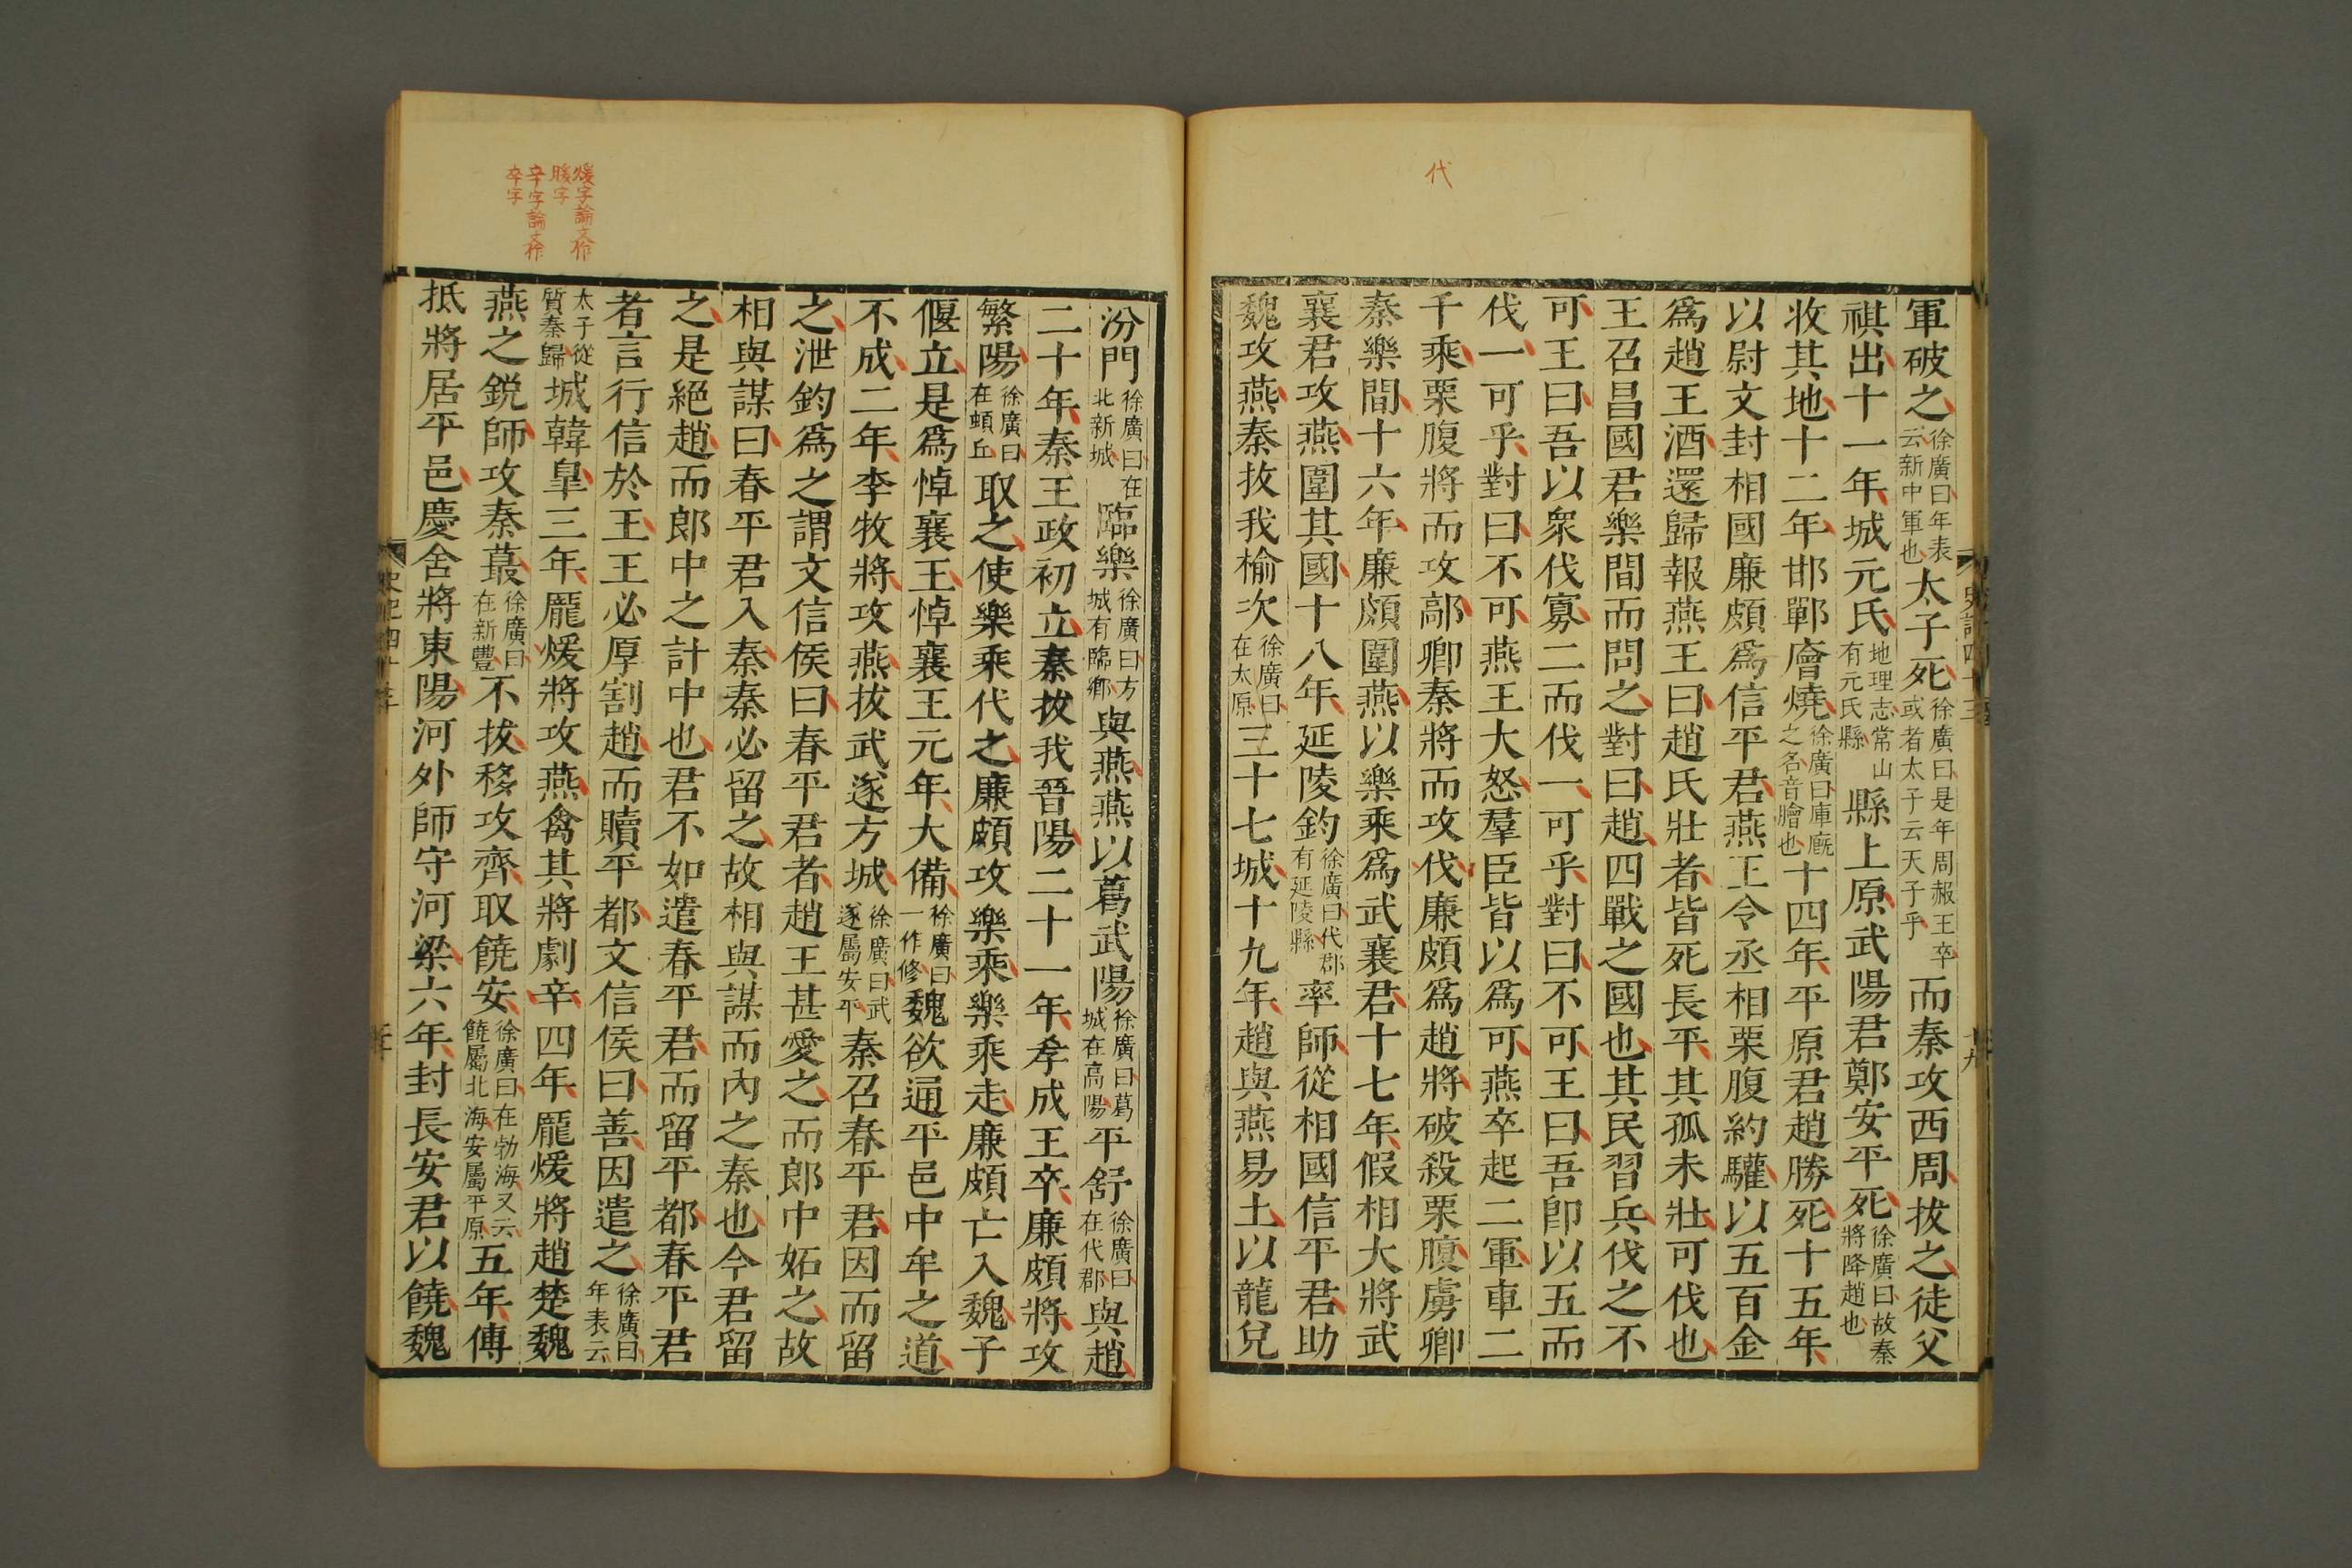 代
軍破之徐廣曰年表云新中軍也太子死徐廣曰是年周赧王卒或者太子云天子乎而秦攻西周拔之徒父
祺出十一年城元氏地理志常山有元氏縣縣上原武陽君鄭安平死徐廣曰故秦將降趙也
收其地十二年邯鄲廥燒徐廣曰庫廐之名音膾也十四年平原君趙勝死十五年
以尉文封相國廉頗爲信平君燕王令丞相栗腹約驩以五百金
爲趙王酒還歸報燕王曰趙氏壯者皆死長平其孤未壯可伐也
王召昌國君樂間而問之對曰趙四戰之國也其民習兵伐之不
可王曰吾以衆伐寡二而伐一可乎對曰不可王曰吾卽以五而
伐一可乎對曰不可燕王大怒羣臣皆以爲可燕卒起二軍車二
千乘栗腹將而攻鄗卿秦將而攻伐廉頗爲趙將破殺栗腹虜卿
秦樂間十六年廉頗圍燕以樂乘爲武襄君十七年假相大將武
襄君攻燕圍其國十八年延陵釣徐廣曰代郡有延陵縣率師從相國信平君助
魏攻燕秦拔我榆次徐廣曰在太原三十七城十九年趙與燕易土以龍兌
汾門徐廣曰在北新城臨樂徐廣曰方城有臨鄉與燕燕以葛武陽徐廣曰葛城在高陽平舒徐廣曰在代郡與趙
二十年秦王政初立秦拔我晉陽二十一年孝成王卒廉頗將攻
繁陽徐廣曰在頓丘取之使樂乘代之廉頗攻樂乘樂乘走廉頗亡入魏子
偃立是爲悼襄王悼襄王元年大備徐廣曰一作修魏欲通平邑中牟之道
不成二年李牧將攻燕拔武遂方城徐廣曰武遂屬安平秦召春平君因而留
之泄釣爲之謂文信侯曰春平君者趙王甚愛之而郎中妬之故
相與謀曰春平君入秦秦必留之故相與謀而內之秦也今君留
之是絕趙而郎中之計中也君不如遣春平君而留平都春平君
者言行信於王王必厚割趙而贖平都文信侯曰善因遣之徐廣曰年表云
太子從質秦歸城韓臯三年龐煖將攻燕禽其將劇辛四年龐煖將趙楚魏
燕之銳師攻秦蕞徐廣曰在新豐不拔移攻齊取饒安徐廣曰在勃海又云饒屬北海安屬平原五年傅
抵將居平邑慶舍將東陽河外師守河梁六年封長安君以饒魏
煖字論文作
腶字
辛字論文作
卒字